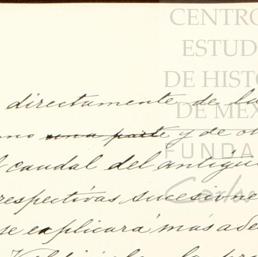 CENTRO
ESTUD
DE HISTO
DE MÉX
FUNDA
Carlos
directamente de la
no una parte y de ot
l caudal del antigu
respectivas sucesiv
se explicará más ade